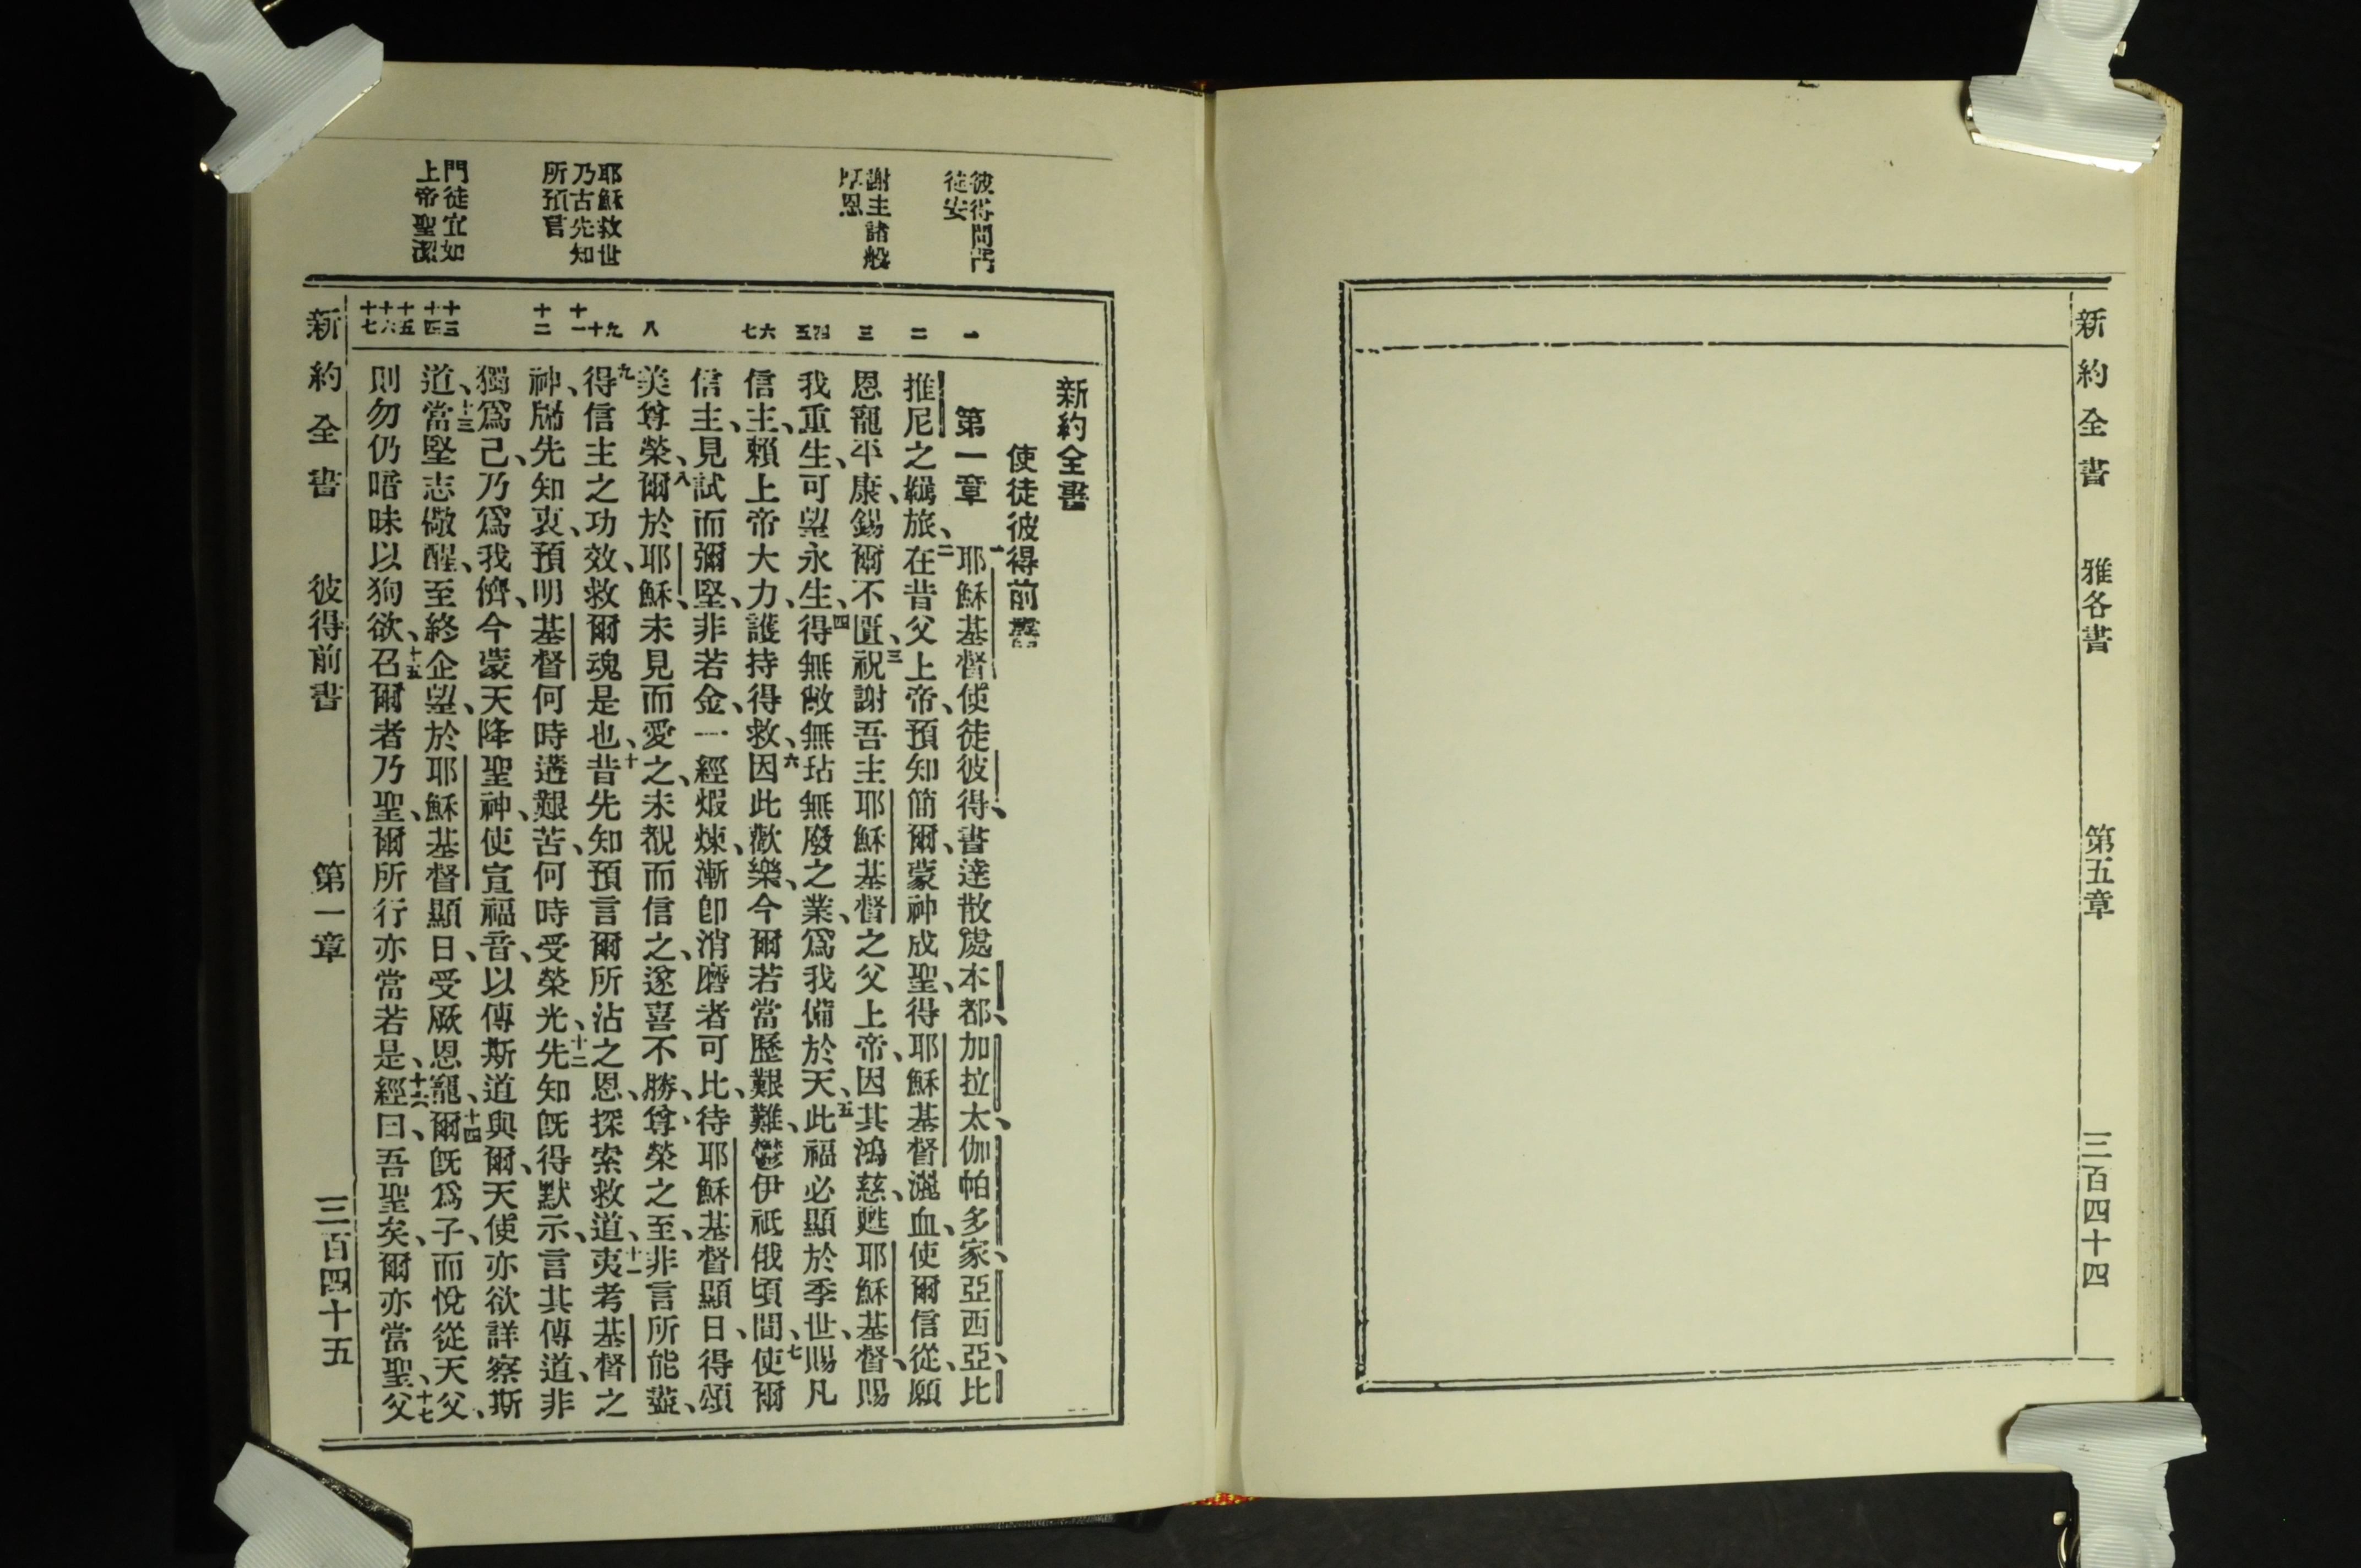 新約全書 雅各書 第五章 三百四十四
彼得問門
徒安
謝主諸般
厚恩
耶穌救世
乃古先知
所預言
門徒宜如
上帝聖潔
一
二
三
四
五
六
七
八
九
十
十一
十二
十三
十四
十五
十六
十七
新約全書
使徒彼得前書
第一章 一耶穌基督使徒彼得、書達散處本都、加拉太、伽帕多家、亞西亞、比
推尼之羈旅、二在昔父上帝、預知簡爾、蒙神成聖、得耶穌基督灑血、使爾信從、願
恩寵平康、錫爾不匱、三祝謝吾主耶穌基督之父上帝、因其鴻慈、甦耶穌基督、賜
我重生、可望永生、四得無敝無玷無廢之業、爲我備於天、五此福必顯於季世、賜凡
信主、賴上帝大力、護持得救、六因此歡樂、今爾若當歷艱難、鬱伊祇俄頃間、七使爾
信主、見試而彌堅、非若金、一經煆煉、漸卽消磨者可比、待耶穌基督顯日、得頌
美尊榮、八爾於耶穌、未見而愛之、未覩而信之、遂喜不勝、尊榮之至、非言所能葢、
九得信主之功效、救爾魂是也、十昔先知預言爾所沾之恩、探索救道、十一夷考基督之
神、牖先知衷、預明基督何時遘艱苦、何時受榮光、十二先知旣得默示、言其傳道、非
獨爲己、乃爲我儕、今蒙天降聖神、使宣福音、以傳斯道與爾、天使亦欲詳察斯
道、十三當堅志儆醒、至終企望、於耶穌基督顯日、受厥恩寵、十四爾旣爲子、而悅從天父、
則勿仍喑昧以狥欲、十五召爾者乃聖、爾所行亦當若是、十六經曰、吾聖矣、爾亦當聖、十七父
新約全書 彼得前書 第一章 三百四十五